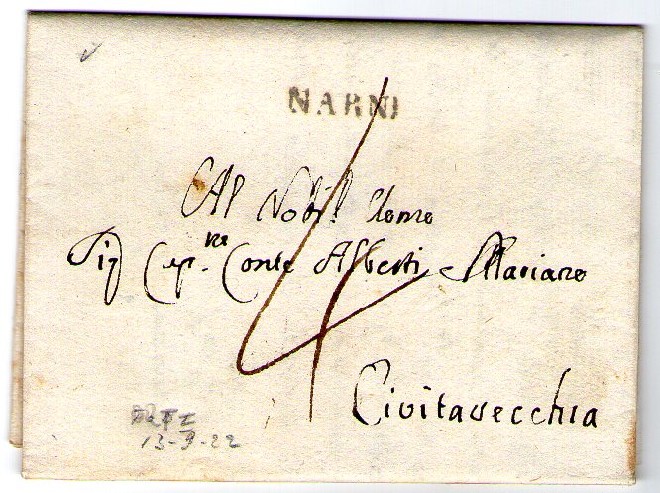 NARNI
Al Nobil. Uomo
Sig Cap.re Conte Alberti Mariano
4
Civitavecchia
13-9-22